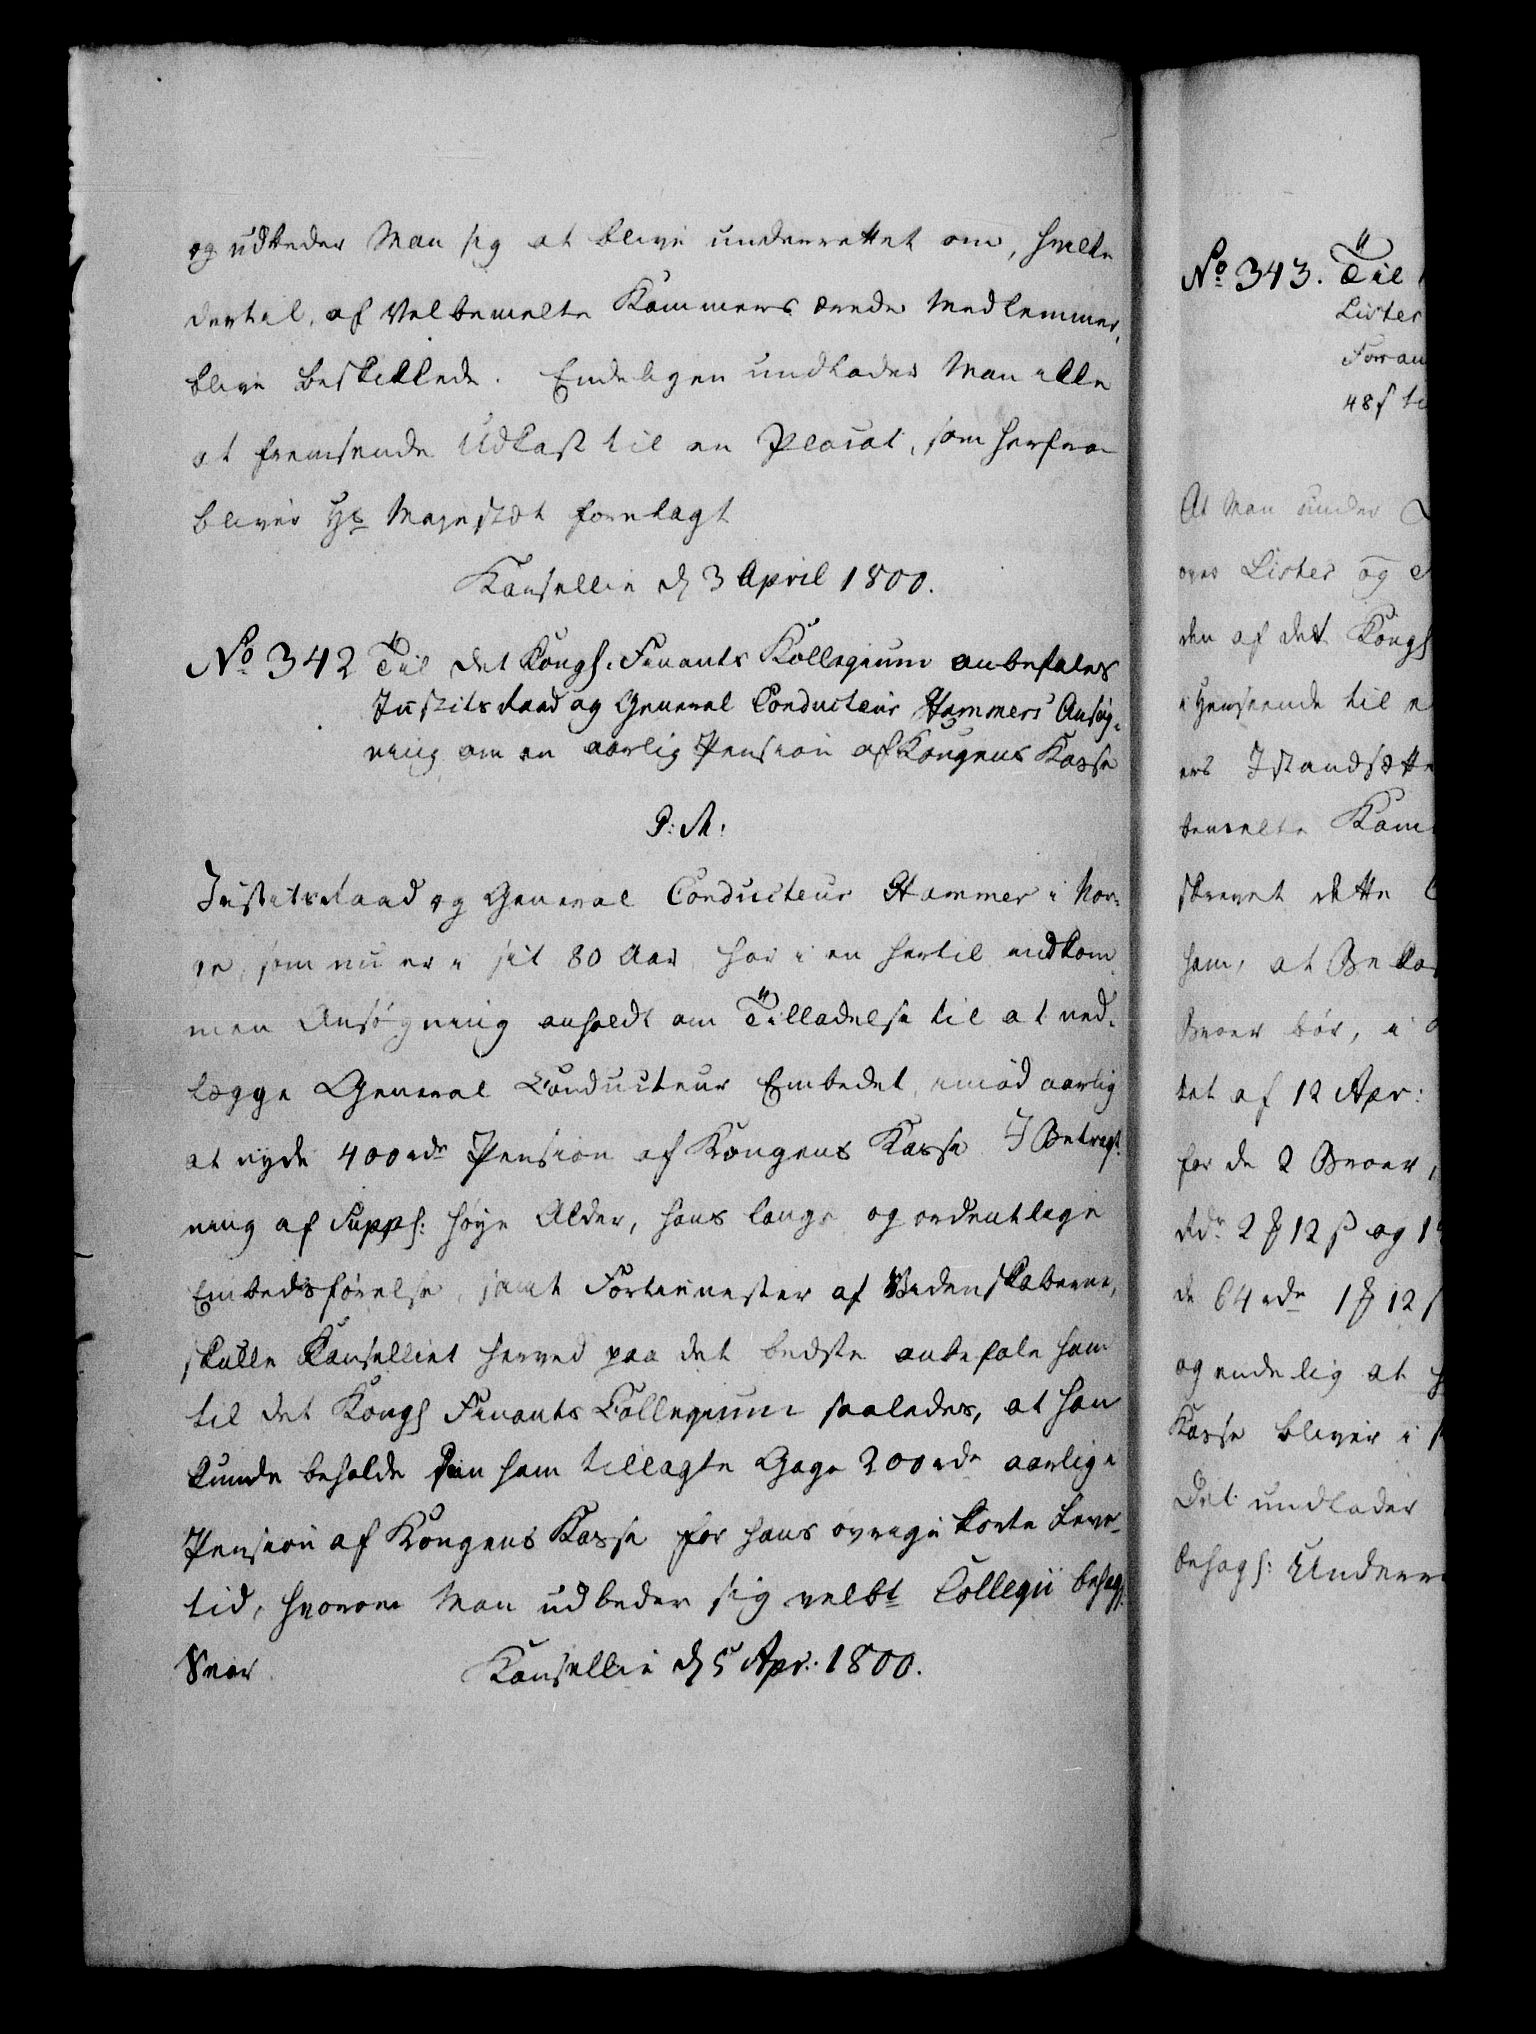 og udbeder Man sig at blive underrettet om, hvilke
dertil, af Velbemelte Kammers ærede Medlemmer,
blive beskikkede. Endeligen undlader Man ikke
at fremsende Udkast til en Placat, som herfra
bliver Hs Majestæt forelagt
Kanselliet d 3 April 1800.
No 342 Til det Kongl. Finants Kollegium anbefales
Justitsraad og General Conducteur Hammers Ansøg-
ning om en aarlig Pension af Kongens Kasse
P: M:
Justitsraad og General Conducteur Hammer i Nor-
ge, som nu er i sit 80 Aar, har i en hertil indkom
men Ansøgning anholdt om Tilladelse til at ned-
lægge General Conducteur Embedet, imod aarlig
at nyde 400 rdr Pension af Kongens Kasse I Betragt-
ning af Suppl: høye Alder, hans lange og ordentlige
Embedsførelse, samt Fortienester af Videnskaberne,
skulle Kanselliet herved paa det bedste anbefale ham
til det Kongl Finants Collegium saaledes, at han
kunde beholde den ham tillagte Gage 200 rdr aarlig i
Pension af Kongens Kasse for hans øvrige korte Leve-
tid, hvorom Man udbeder sig velbt Collegii behagl.
Svar.
Kanselliet d 5 Apr: 1800.
No 343. Til
Lister
Forran
48 s til
At Man under
over Lister og
den af det Kongl
i Henseende til
ers Istandsætte
bemelte Kam
skrevet dette
ham, at Bekos
Broer bør, i
tet af 12 Apr:
for de 2 Broer,
Rdr 2 12 s og 1
de 64 rdr 1 12 s
og endelig at
Kasse bliver i
Det undlader
behagl: Underr